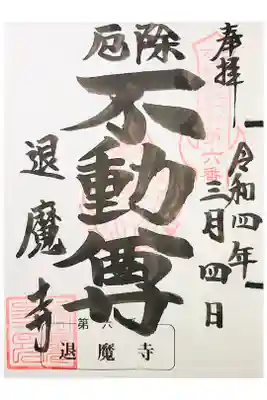 奉拝
令和四年
三月四日
第六番
厄除
不動尊
退魔寺
第六
退魔寺